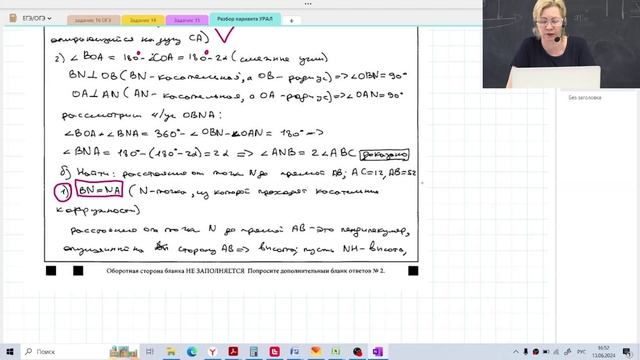 ЕГЭ/ОГЭ
Задание 16 ОГЭ
Задание 14
Задание 15
Разбор варианта УРАЛ
опирающийся на дугу CA)
2) ∠BOA = 180° - ∠COA = 180° - 2α (смежные углы)
BN⊥OB (BN - касательная, а OB - радиус) => ∠OBN = 90°
OA⊥AN (AN - касательная, а OA - радиус) => ∠OAN = 90°
рассмотрим 4/уг OBNA:
∠BOA + ∠BNA = 360° - ∠OBN - ∠OAN = 180° =>
∠BNA = 180° - (180° - 2α) = 2α => ∠ANB = 2∠ABC доказано
б) Найти: расстояние от точки N до прямой AB; AC=12, AB=52
1) BN = NA (N - точка, из которой проходят касательные
к окружности)
расстояние от точки N до прямой AB - это перпендикуляр,
опущенный на сторону AB => высота; пусть NH - высота,
Оборотная сторона бланка НЕ ЗАПОЛНЯЕТСЯ Попросите дополнительный бланк ответов № 2.
Без заголовка
Поиск
РУС
16:52
13.06.2024